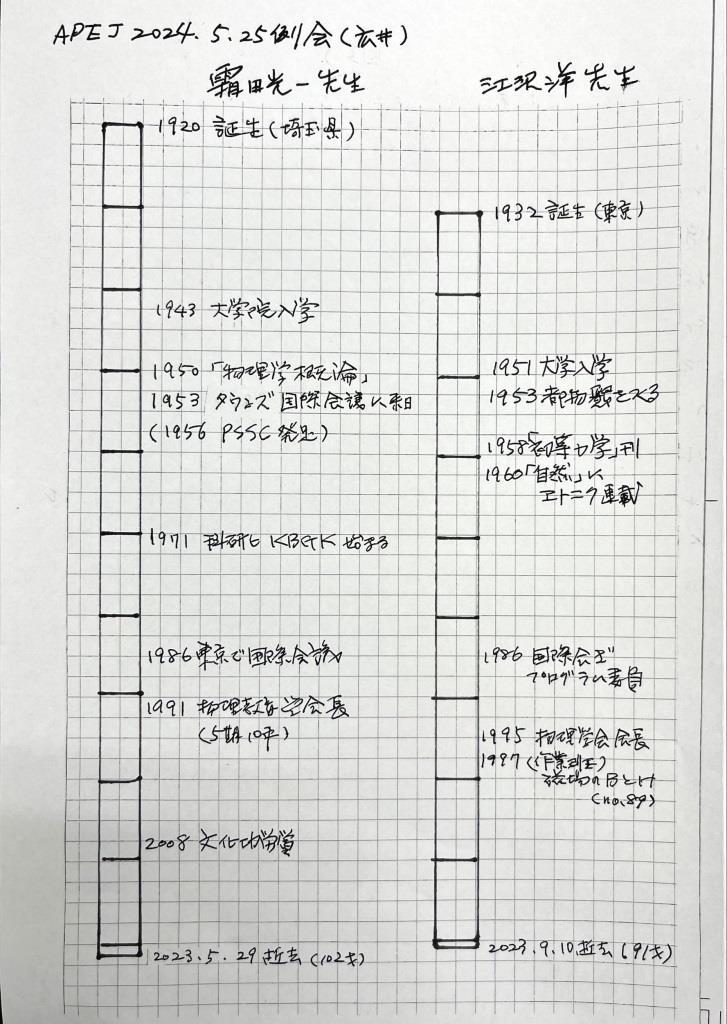 APEJ 2024.5.25例会(広井)
霜田光一先生
1920 誕生(埼玉県)
1943 大学院入学
1950「物理学概論」
1953 タウンズ国際会議に来日
(1956 PSSC発足)
1971 科研ヒKBGK始まる
1986東京で国際会議
1991 物理教育学会会長
(5期10年)
2008 文化功労賞
2023.5.29逝去(102才)
江沢洋先生
1932誕生(東京)
1951 大学入学
1953 都物懇をつくる
1958「初等力学」刊
1960「自然」に
エトニク連載
1986 国際会議
プログラム委員
1995 物理学会会長
1997(作業班)
磁場のBとH
(no.89)
2023.9.10逝去(91才)